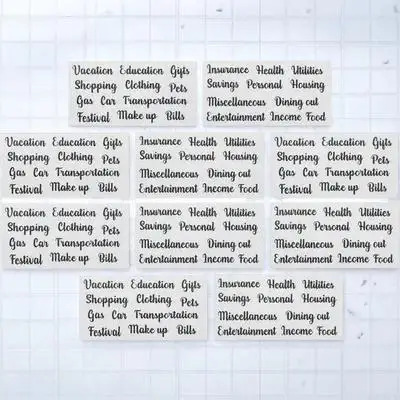 Vacation Education Gifts
Shopping Clothing Pets
Gas Car Transportation
Festival Make up Bills
Insurance Health Utilities
Savings Personal Housing
Miscellaneous Dining out
Entertainment Income Food
Vacation Education Gifts
Shopping Clothing Pets
Gas Car Transportation
Festival Make up Bills
Insurance Health Utilities
Savings Personal Housing
Miscellaneous Dining out
Entertainment Income Food
Vacation Education Gifts
Shopping Clothing Pets
Gas Car Transportation
Festival Make up Bills
Vacation Education Gifts
Shopping Clothing Pets
Gas Car Transportation
Festival Make up Bills
Insurance Health Utilities
Savings Personal Housing
Miscellaneous Dining out
Entertainment Income Food
Insurance Health Utilities
Savings Personal Housing
Miscellaneous Dining out
Entertainment Income Food
Vacation Education Gifts
Shopping Clothing Pets
Gas Car Transportation
Festival Make up Bills
Insurance Health Utilities
Savings Personal Housing
Miscellaneous Dining out
Entertainment Income Food